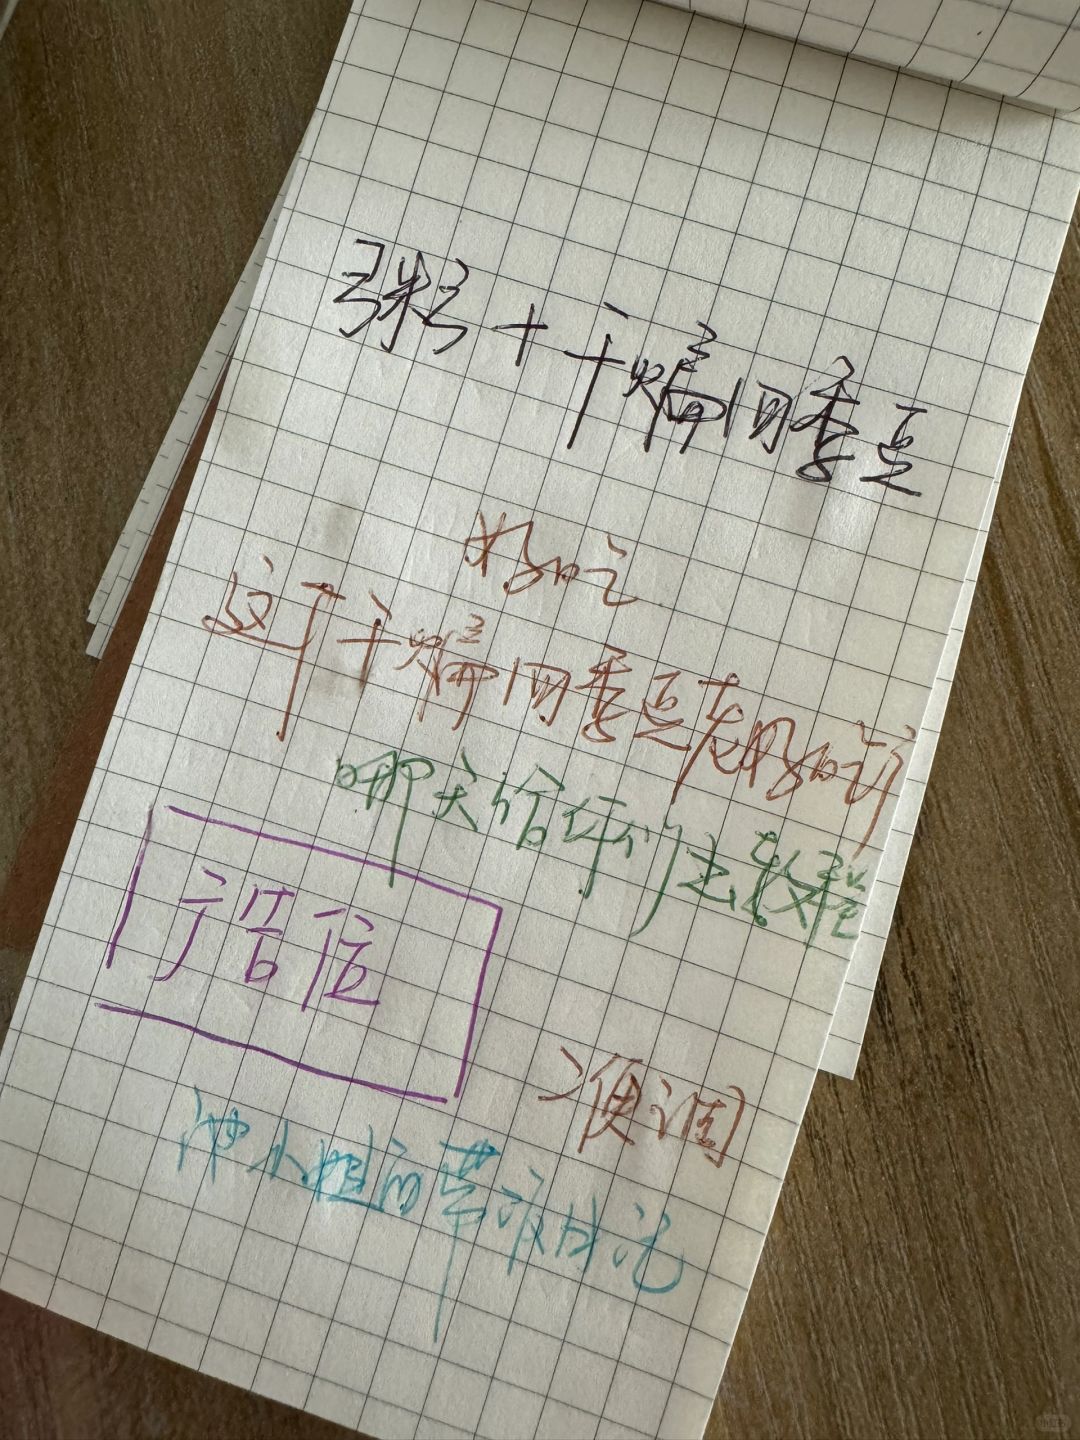 粥+ 干煸四季豆
好吃
这个干煸四季豆老好吃了
哪天给你们出教程
广告位
准调
小姐的带货生活